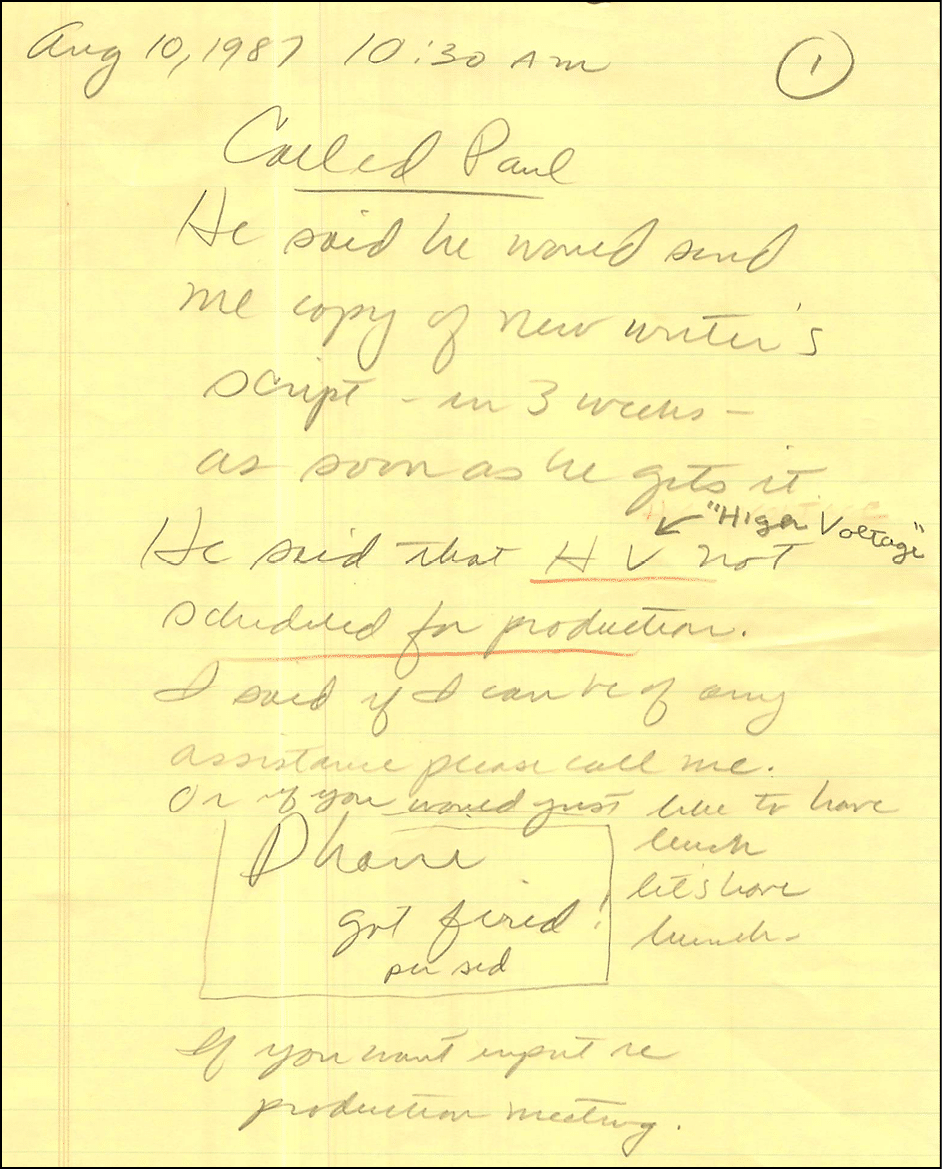 Aug 10, 1987 10:30 AM
1
Called Paul
He said he would send
me copy of new writer's
script - in 3 weeks -
as soon as he gets it.
"High Voltage"
He said that H V not
scheduled for production.
I said if I can be of any
assistance please call me.
Or if you would just like to have
lunch
let's have
lunch -
got fired!
per
If you want input re
production meeting.